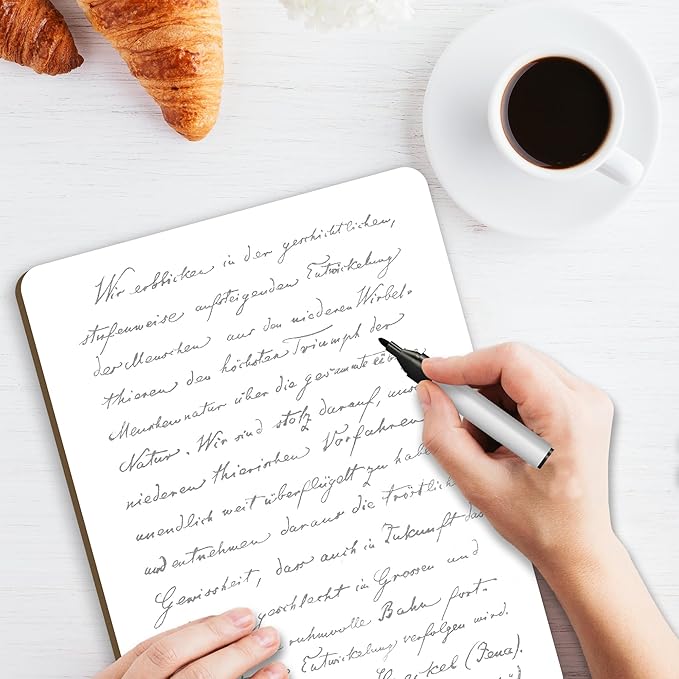 Wir erblicken in der geschichtlichen,
stufenweise aufsteigenden Entwickelung
der Menschen aus den niederen Wirbel-
thieren den höchsten Triumph der
Menschennatur über die gesammte
Natur. Wir sind stolz darauf,
niederen thierischen Vorfahren
unendlich weit überflügelt zu
und entnehmen daraus die
Gewissheit, dass auch in Zukunft das
geschlecht im Grossen und
ruhmvolle Bahn fort-
Entwickelung verfolgen wird.
(Jena).